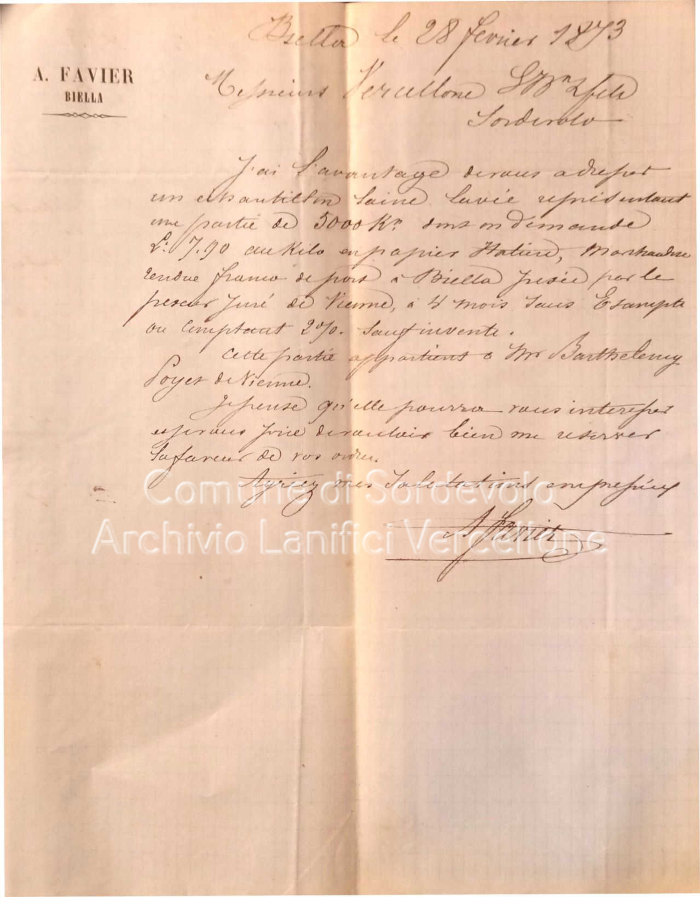 A. FAVIER
BIELLA
Biella le 28 fevrier 1873
Messieurs Vercellone
Sordevolo
J'ai l'avantage de vous adresser
un echantillon laine lavée représentant
une partie de 5000 Kos dont on demande
L. 7.90 au Kilo en papier Italien, Marchandise
rendue franco de port à Biella pesée par le
peseur juré de Vienne, à 4 mois sans Escompte
ou Comptant 2%. sauf invente.
Cette partie appartient à Mr Barthelemy
de Vienne.
Je pense qu'elle pourra vous interesser
et vous de vouloir bien me reserver
la faveur de vos ordres.
Agréez mes Salutations empressées
A Favier
Comune di Sordevolo
Archivio Lanifici Vercellone